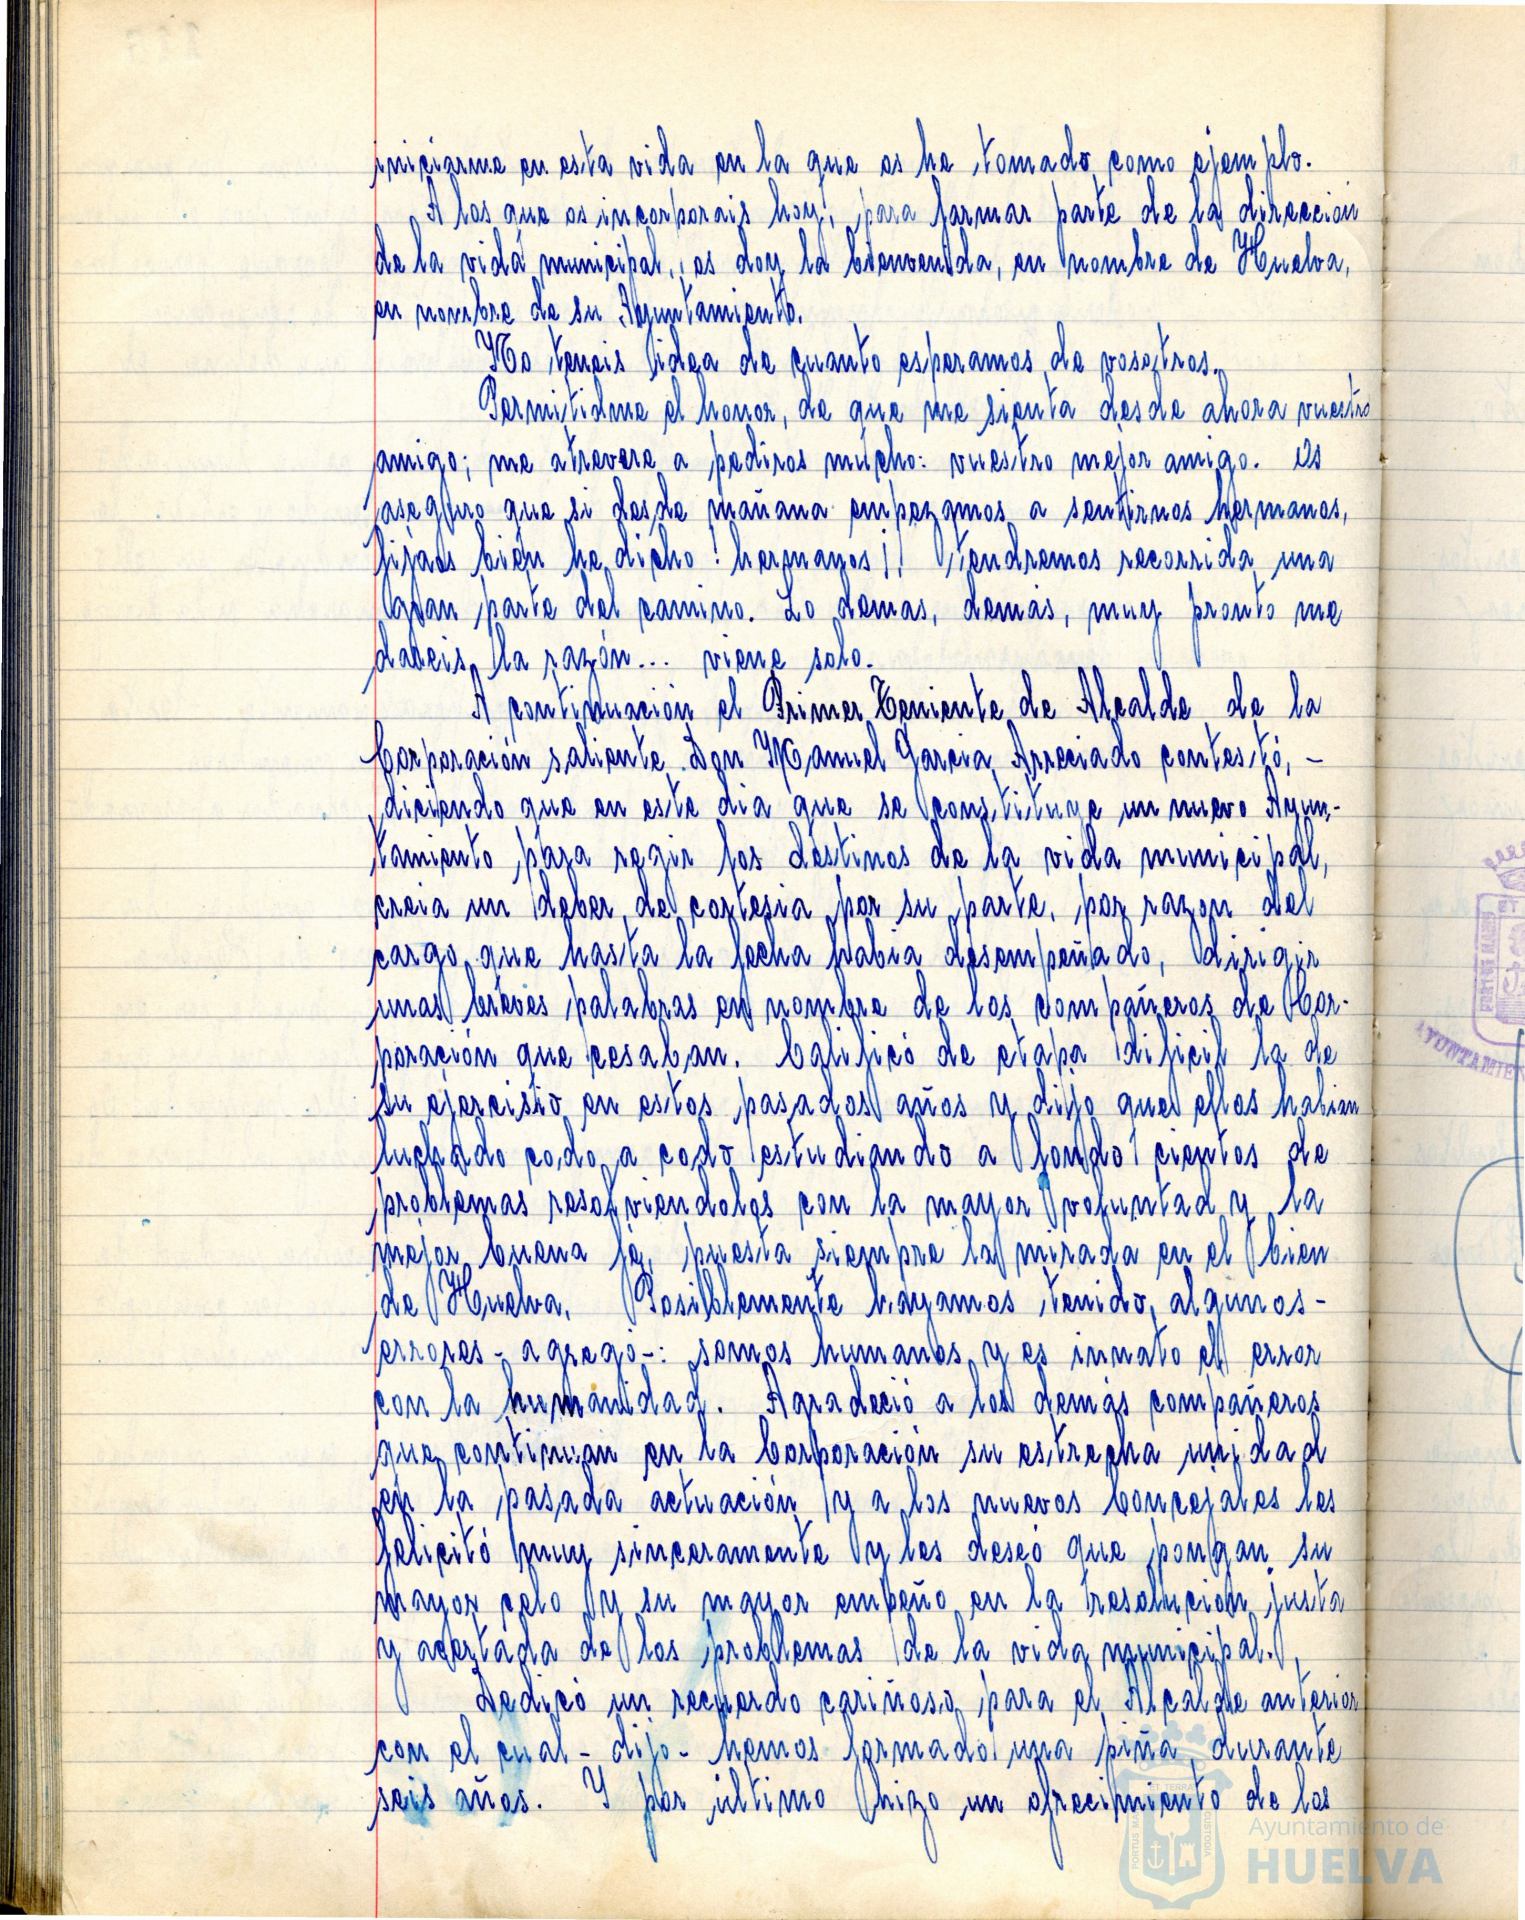 iniciarme en esta vida en la que os he tomado como ejemplo.
A los que os incorporais hoy, para formar parte de la dirección
de la vida municipal, os doy la bienvenida, en nombre de Huelva,
en nombre de su Ayuntamiento.
No teneis idea de cuanto esperamos de vosotros.
Permitidme el honor, de que me sienta desde ahora vuestro
amigo; me atrevere a pediros mucho: vuestro mejor amigo. Os
aseguro que si desde mañana empezamos a sentirnos hermanos,
fijaos bién he dicho ! hermanos ¡! tendremos recorrida una
gran parte del camino. Lo demas, demás, muy pronto me
dareis la razón... viene solo.
A continuación el Primer Teniente de Alcalde de la
Corporación saliente Don Manuel Garcia Arreciado contestó, -
diciendo que en este dia que se constituye un nuevo Ayun-
tamiento para regir los destinos de la vida municipal,
creia un deber de cortesia por su parte, por razon del
cargo que hasta la fecha habia desempeñado, dirigir
unas breves palabras en nombre de los compañeros de Cor-
poración que cesaban. Calificó de etapa dificil la de
su ejercisio en estos pasados años y dijo que ellos habian
luchado codo a codo estudiando a fondo cientos de
problemas resolviendolos con la mayor voluntad y la
mejor buena fe, puesta siempre la mirada en el bien
de Huelva. Posiblemente hayamos tenido algunos -
errores - agregó -: somos humanos y es innato el error
con la humanidad. Agradeció a los demás compañeros
que continuan en la Corporación su estrecha unidad
en la pasada actuación y a los nuevos Concejales les
felicitó muy sinceramente y les deseó que pongan su
mayor celo y su mayor empeño en la resolución justa
y acertada de los problemas de la vida municipal.
Dedicó un recuerdo cariñoso para el Alcalde anterior
con el cual - dijo - hemos formado una piña durante
seis años. Y por último hizo un ofrecimiento de los
Ayuntamiento de
HUELVA